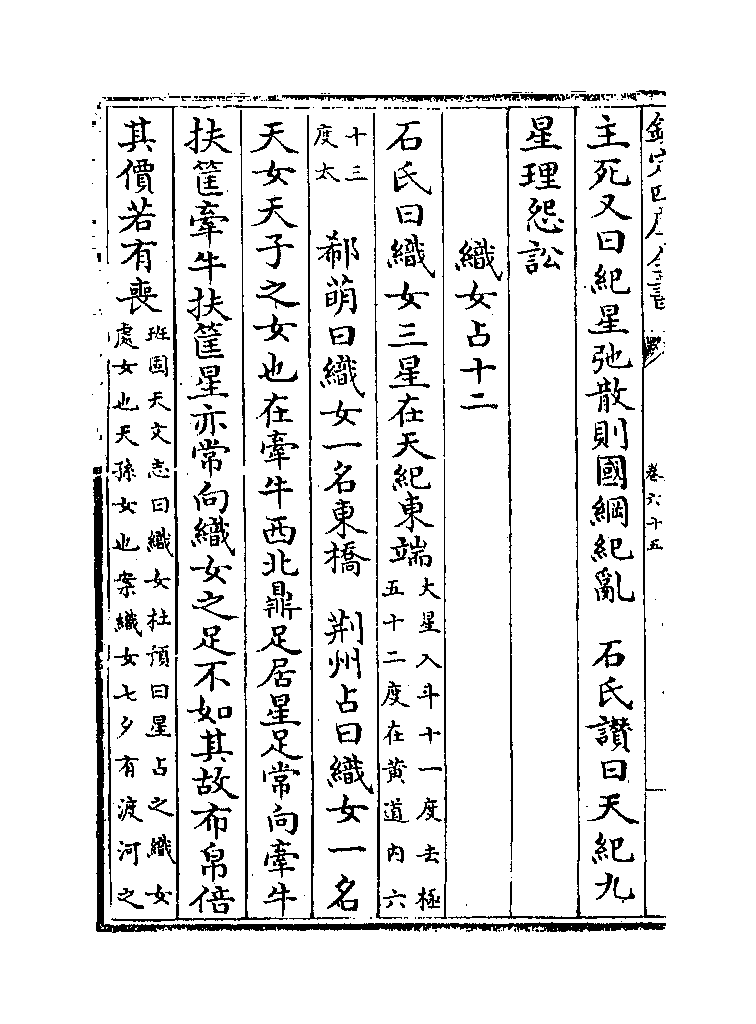 欽定四庫全書
卷六十五
主死又曰紀星弛散則國綱紀亂　石氏讃曰天紀九
星理怨訟
織女占十二
石氏曰織女三星在天紀東端大星入斗十一度去極
五十二度在黄道内六
十三
度太
郗萌曰織女一名東橋　荆州占曰織女一名
天女天子之女也在牽牛西北鼎足居星足常向牽牛
扶筐牽牛扶筐星亦常向織女之足不如其故布帛倍
其價若有喪班固天文志曰織女杜預曰星占之織女
處女也天孫女也案織女七夕有渡河之